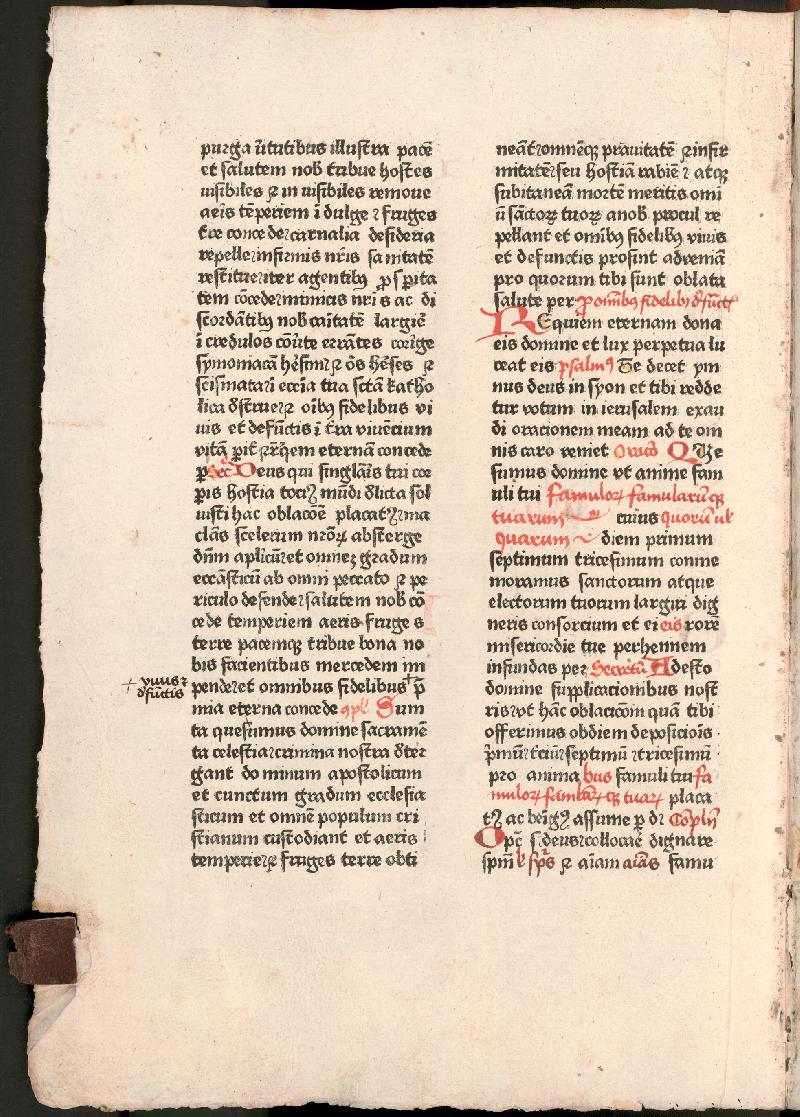 purga ũtutibus illustra pacē
et salutem nob tribue hostes
uisibiles ⁊ in uisibiles remoue
aeis tēperiem ĩ dulge ⁊ fruges
tre conce de⁊ carnalia desideria
repelle⁊ infirmis nr̃is sanitatē
restitue⁊ iter agentibꝰ ꝓspita
tem cōcede⁊ inimicis nr̃is ac di
scordātibꝰ nob caĩtatē largire
ĩ credulos cōũte errātes corige
symoniacā h̃esim⁊ ōs h̃eses ⁊
scismata⁊ ĩ eccĩa tua sctā katho
lica dstrue⁊ oĩbꝰ fidelibus vi
uis et defūctis ĩ tra viuēcium
vitā ꝑpit̃ ⁊ rq̃em eternā concede
ꝑ Sec̃ Deus qui singĩais tui cor
ꝑis hostia tociꝰ mūdi dlicta sol
uisti hac oblacōe placatꝰ⁊ ma
clās scelerum nroꝝ absterge
dñm aplicũ⁊ et omneȝ gradum
eccãsticũ ab omni peccato ⁊ pe
riculo defende⁊ salutem nob cō
cede temperiem aeris fruges
terre pacemqꝫ tribue bona no
bis facientibus mercedem im
+ viuis ⁊
dfūctis
pende⁊ et omnibus fidelibus + p̃
mia eterna concede ꝯpl̃ Sum
ta quesumus domine sacramē
ta celestia⁊ crimina nostra dter
gant dominum apostolicum
et cunctum gradum ecclesia
sticum et omnē populum cri
stianum custodiant et aeris
temperie⁊ ⁊ fruges terre obti
neāt⁊ omnēqꝫ prauitatē ⁊ infir
mitatē⁊ seu hostiā rabiē ⁊ atqꝫ
subitaneā mortē meritis omi
ũ sāctoꝝ tuoꝝ anob procul re
pellant et omĩbꝰ fidelibꝰ viuis
et defunctis prosint ad veniā
pro quorum tibi sunt oblata
salute per ꝓ omĩbus fidelibꝰ dfūct̃
REquiem eternam dona
eis domine et lux perpetua lu
ceat eis psalmꝰ Te decet ym
nus deus in syon et tibi redde
tur votum in ierusalem exau
di oracionem meam ad te om
nis caro veniet Oracō Que
sumus domine vt anime fam
uli tui famuloꝝ famularūqꝫ
tuarum cuius quorū ul
quarum diem primum
septimum tricesimum conme
moramus sanctorum atque
electorum tuorum largiri dig
neris consorcium et ei eis rorē
misericordie tue perhennem
infundas per Secretũ Adesto
domine supplicacionibus nost
ris⁊ vt hāc oblaciōm quā tibi
offerimus ob diem deposiciōis
p̃mũ⁊ t̃ciũ⁊ septimū ⁊ tricesimū
pro anima bus famuli tui fa
muloꝝ famlaꝝqꝫ tuaꝝ placa
tꝰ ac beĩgꝰ assume ꝑ dr̃ Cōpln̄
Opc̃ s̃ deus⁊ collocaē dignare
spm̄ l̃ sp̄s ⁊ aĩam aĩas famu